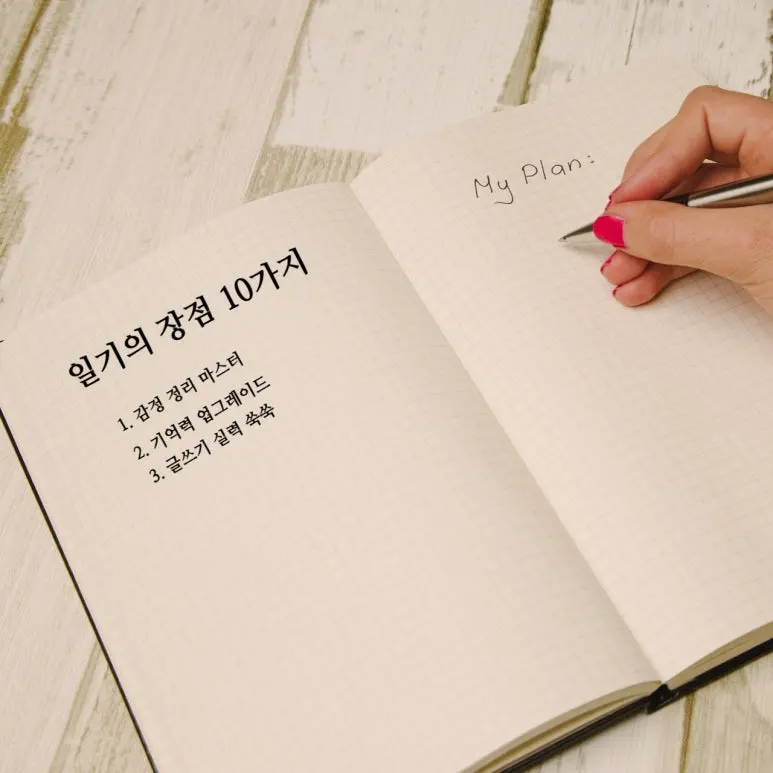 일기의 장점 10가지
1. 감정 정리 마스터
2. 기억력 업그레이드
3. 글쓰기 실력 쑥쑥
My Plan: